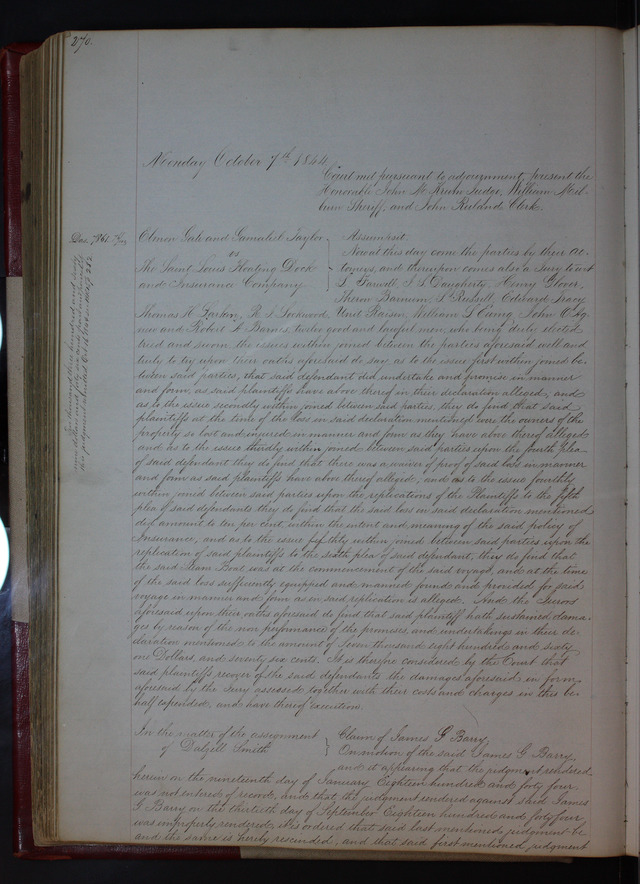 270.
Monday October 7th 1844
Court met pursuant to adjournment, present the
Honorable John M. Krum Judge, William Mil-
burn Sheriff, and John Ruland Clerk.
Almon Gate and Gamaliel Taylor
vs
The Saint Louis Floating Dock
and Insurance Company
Assumpsit.
Now at this day come the parties by their at-
torneys, and thereupon comes also a Jury to wit
Farwell, Daugherty, Henry Glover,
Barnum, Russell, Edward Tracy
Thomas H. Larkin, Lockwood, William L. John
and Robert A. Barnes, twelve good and lawful men, who being duly elected
tried and sworn, the issues within joined between the parties aforesaid well and
truly to try upon their oaths aforesaid do say, as to the issue first within joined be-
tween said parties, that said defendant did undertake and promise in manner
and form, as said plaintiffs have above thereof in their declaration alleged, and
as to the issue secondly within joined between said parties, they do find that said
plaintiffs at the time of the loss in said declaration mentioned were the owners of the
property so lost and injured in manner and form as they have above thereof alleged
and as to the issue thirdly within joined between said parties upon the fourth plea
of said defendant they do find that there was a waiver of proof of said loss in manner
and form as said plaintiffs have above thereof alleged, and as to the issue fourthly
within joined between said parties upon the replications of the Plaintiffs to the fifth
plea of said defendants they do find that the said loss in said declaration mentioned
did amount to ten per cent within the intent and meaning of the said policy of
Insurance, and as to the issue fifthly within joined between said parties upon the
replication of said plaintiffs to the sixth plea of said defendant, they do find that
the said Steam Boat was at the commencement of the said voyage, and at the time
of the said loss sufficiently equipped and manned found and provided for said
voyage in manner and form as in said replication is alleged. And the Jurors
aforesaid upon their oaths aforesaid do find that said plaintiff hath sustained dama-
ges by reason of the non performance of the promises, and undertakings in their de-
claration mentioned to the amount of Seven thousand eight hundred and sixty
one Dollars, and seventy six cents. It is therefore considered by the Court that
said plaintiffs recover of the said defendants the damages aforesaid in form
aforesaid by the Jury assessed, together with their costs and charges in this be-
half expended, and have thereof execution.
In the matter of the assignment
of Dalzell Smith
Claim of James G Barry
On motion of the said James G. Barry
and it appearing that the judgment rendered
herein on the nineteenth day of January Eighteen hundred and forty four
was not entered of record, and that the judgment rendered against said James
G Barry on the thirtieth day of September Eighteen hundred and forty four
was improperly rendered, it is ordered that said last mentioned judgment be
and the same is hereby rescinded, and that said first mentioned judgment